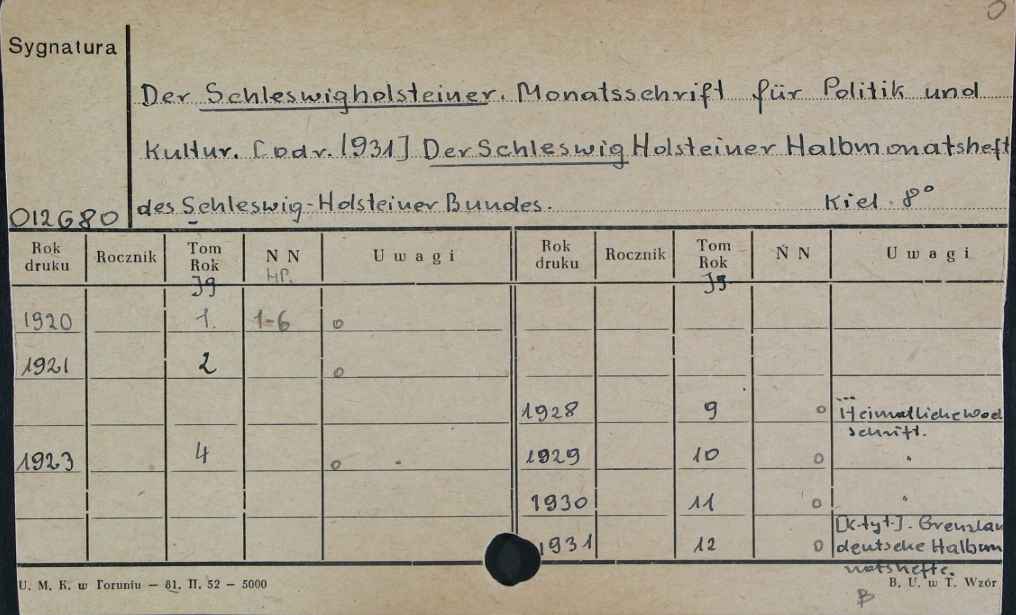 Sygnatura
Der Schleswigholsteiner. Monatsschrift für Politik und
Kultur. [odr. 1931] Der Schleswig Holsteiner Halbmonatsheft
des Schleswig-Holsteiner Bundes. Kiel. 8°
012680
Rok druku Rocznik Tom Rok N N Uwagi Rok druku Rocznik Tom Rok N N Uwagi
Jg Hf. Jg
1920 1. 1-6 o
1921 2 o
1928 9 o Heimatliche
schrift.
1923 4 o 1929 10 o "
1930 11 o "
[K.tyt.]. Grenzlan
1931 12 o deutsche Halbm
natshefte.
U. M. K. w Toruniu — 81. II. 52 — 5000 B. U. w T. Wzór
B